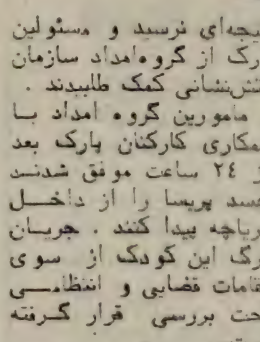 یجه‌ای نرسید و مسئولین
رک از گروه‌امداد سازمان
تش‌نشانی کمک طلبیدند .
مامورین گروه امداد بــا
مکاری کارکنان پارک بعد
ز ۲٤ ساعت موفق شدنــد
سد پریسا را از داخــل
ریاچه پیدا کنند . جریــان
رگ این کودک از سوی
قامات قضایی و انتظامــی
حت بررسی قرار گــرفته